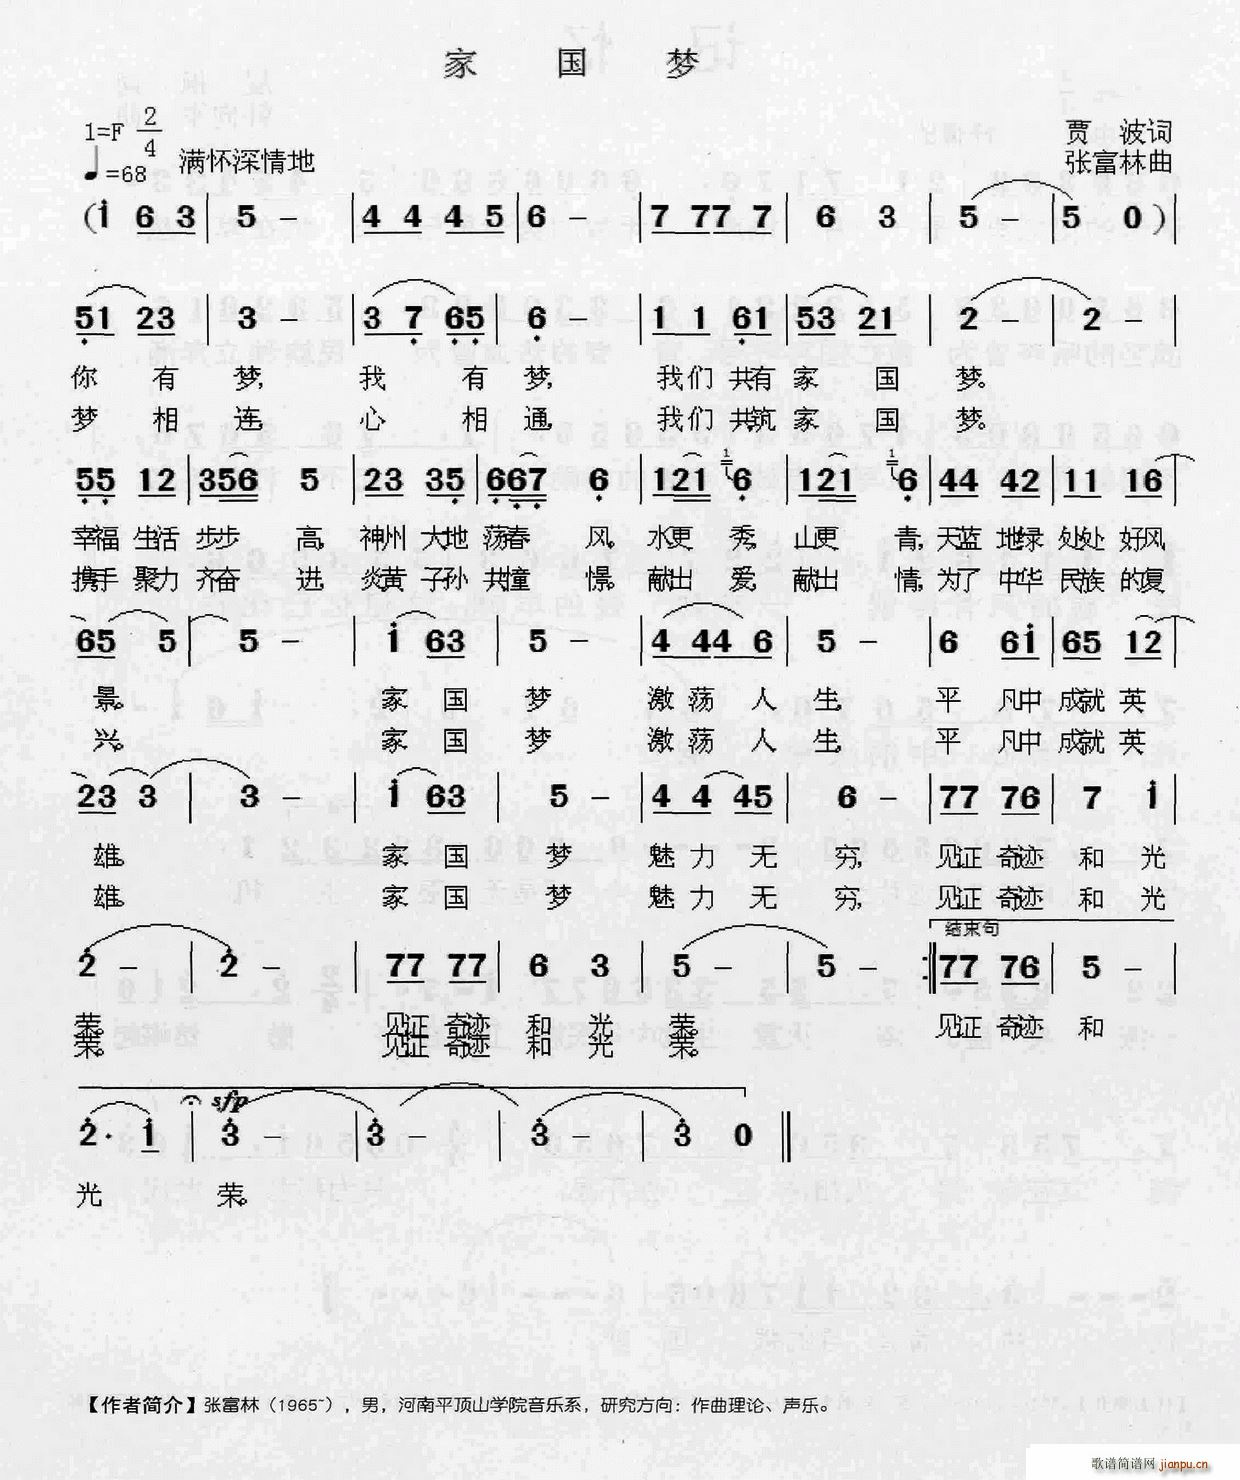 家 国 梦
1=F 2/4
♩=68 满怀深情地
贾 波词
张富林曲
(i 6 3 | 5 - | 4 4 4 5 | 6 - | 7 77 7 | 6 3 | 5 - | 5 0 ) |
51 23 | 3 - | 3 7 65 | 6 - | 1 1 61 | 53 21 | 2 - | 2 - |
你 有 梦, 我 有 梦, 我们 共有 家 国 梦。
梦 相 连, 心 相 通, 我们 共筑 家 国 梦。
55 12 | 356 5 | 23 35 | 667 6 | 121 1 6 | 121 1 6 | 44 42 | 11 16 |
幸福 生活 步步 高, 神州 大地 荡春 风, 水更 秀, 山更 青, 天蓝 地绿 处处 好风
携手 聚力 齐奋 进, 炎黄 子孙 共憧 憬。 献出 爱, 献出 情, 为了 中华 民族 的复
65 5 | 5 - | i 63 | 5 - | 4 44 6 | 5 - | 6 6i | 65 12 |
景。 家 国 梦 激 荡 人 生, 平 凡中 成就 英
兴。 家 国 梦 激 荡 人 生, 平 凡中 成就 英
23 3 | 3 - | i 63 | 5 - | 4 4 45 | 6 - | 77 76 | 7 i |
雄。 家 国 梦 魅 力 无 穷, 见证 奇迹 和 光
雄。 家 国 梦 魅 力 无 穷, 见证 奇迹 和 光
结束句
2 - | 2 - | 77 77 | 6 3 | 5 - | 5 - :‖ 77 76 | 5 - |
荣。 见证 奇迹 和 光 荣。 见证 奇迹 和
荣。 见证 奇迹 和 光 荣。
sfp
2· i | 3 - | 3 - | 3 - | 3 0 ‖
光 荣。
【作者简介】张富林（1965~），男，河南平顶山学院音乐系，研究方向：作曲理论、声乐。
歌谱简谱网 jianpu.cn